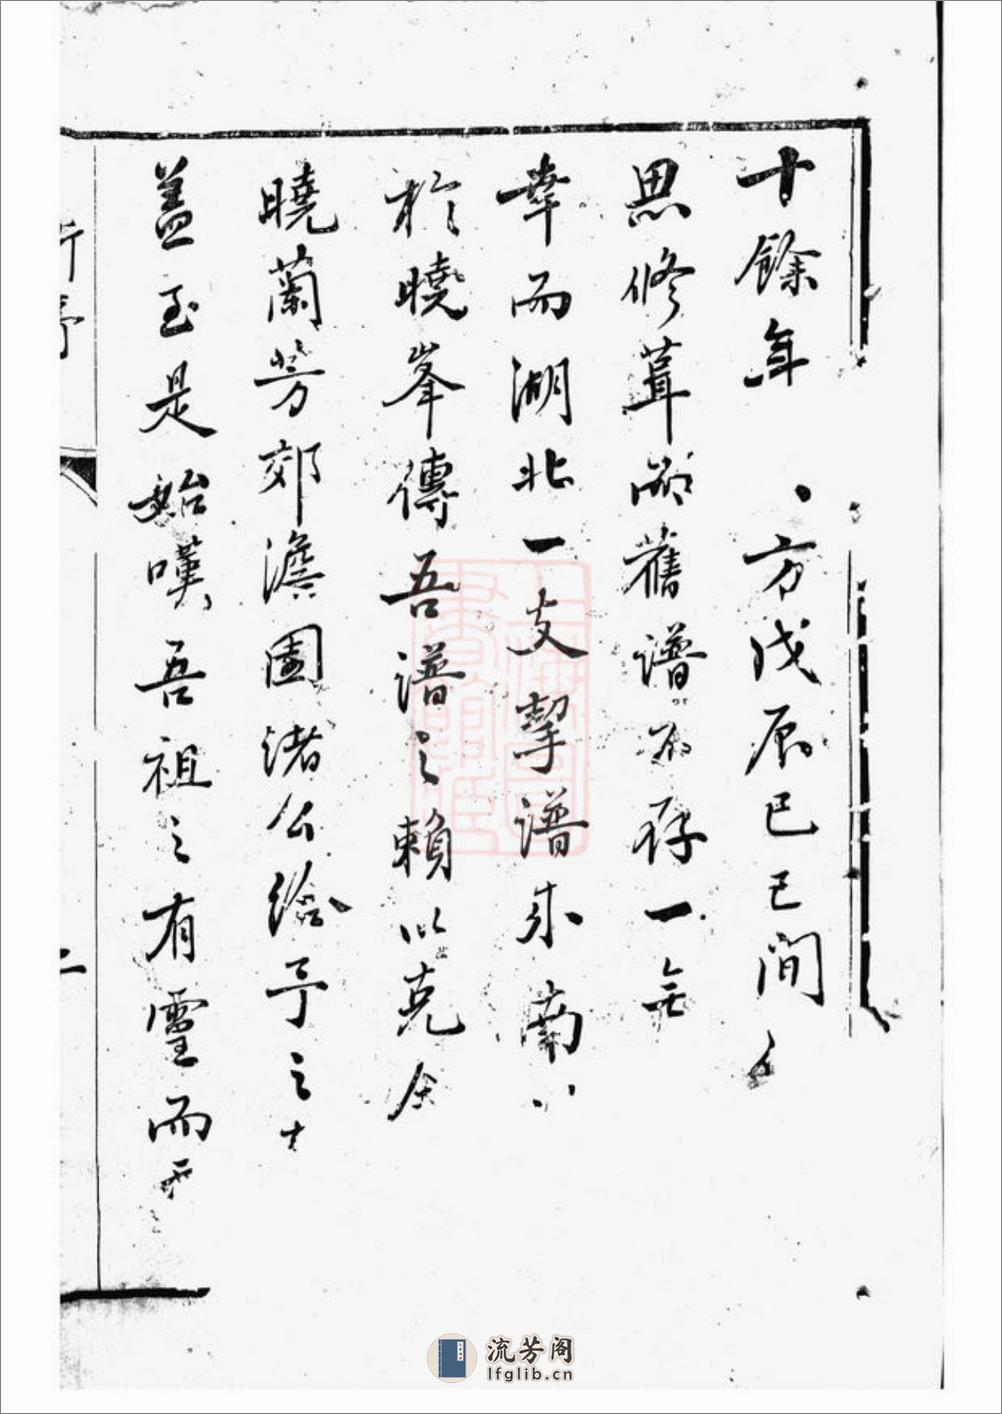 十餘年 方戊辰己巳間
思修葺而舊譜不存一
幸而湖北一支挈譜來南
於曉峯傳吾譜之賴以克全
曉蘭芳郊澹園諸公給予之
蓋至是始嘆吾祖之有靈而
二
流芳阁
lfglib.cn